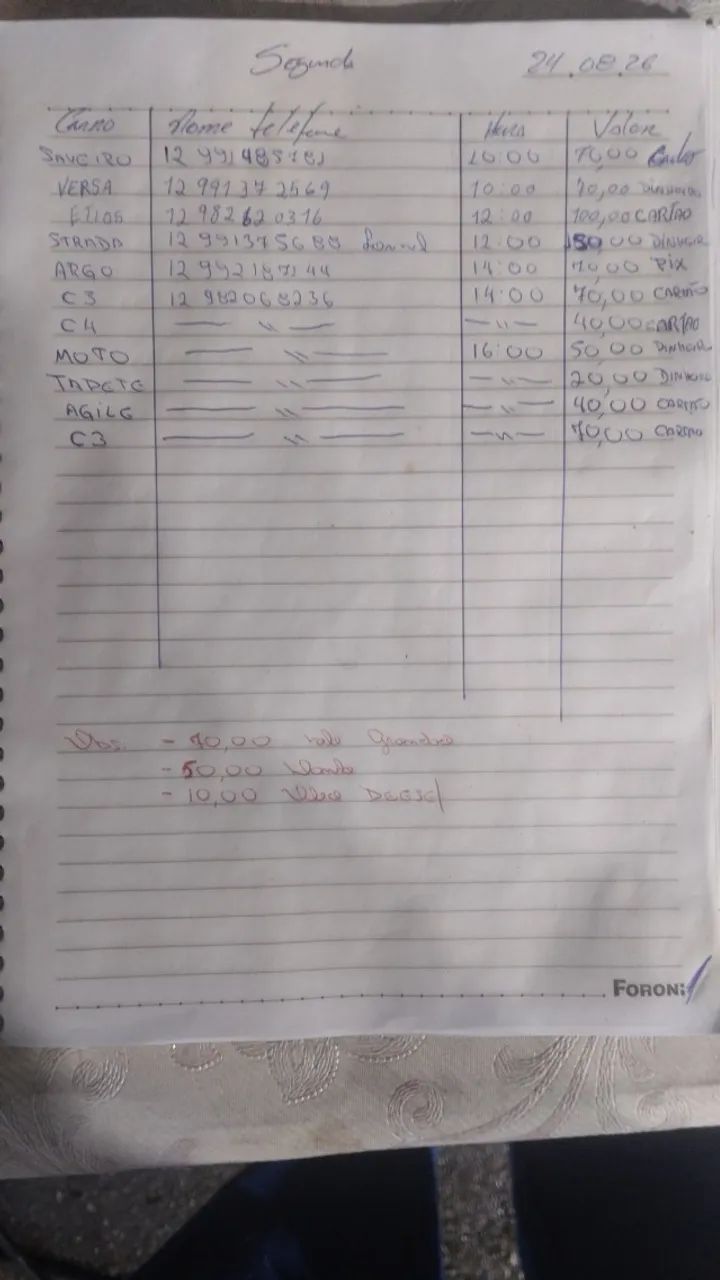 Segunda 24.08.26
CARRO Nome telefone Hora Valor
SAVEIRO 10:00 70,00
VERSA 12 991372569 10:00 70,00 DINHEIRO
ETIOS 12 982620316 12:00 100,00 CARTÃO
STRADA 12 991375688 12:00 50,00 DINHEIR
ARGO 12 992187144 14:00 70,00 PIX
C3 12 982068236 14:00 70,00 CARTÃO
C4 — " — — " — 40,00 CARTAO
MOTO — " — 16:00 50,00 DINHEIR
TAPETE — " — — " — 20,00 DINHEIRO
AGILE — " — — " — 40,00 CARTAO
C3 — " — — " — 70,00 CARTAO
Obs: - 70,00
- 50,00
- 10,00
FORONI